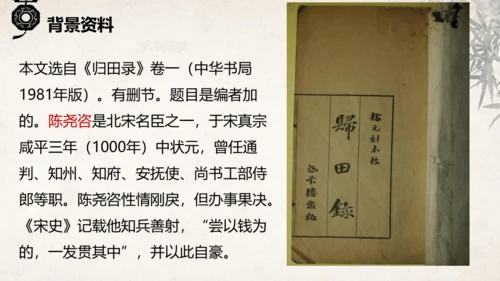 背景资料
本文选自《归田录》卷一（中华书局
1981年版）。有删节。题目是编者加
的。陈尧咨是北宋名臣之一，于宋真宗
咸平三年（1000年）中状元，曾任通
判、知州、知府、安抚使、尚书工部侍
郎等职。陈尧咨性情刚戾，但办事果决。
《宋史》记载他知兵善射，“尝以钱为
的，一发贯其中”，并以此自豪。
歸田錄